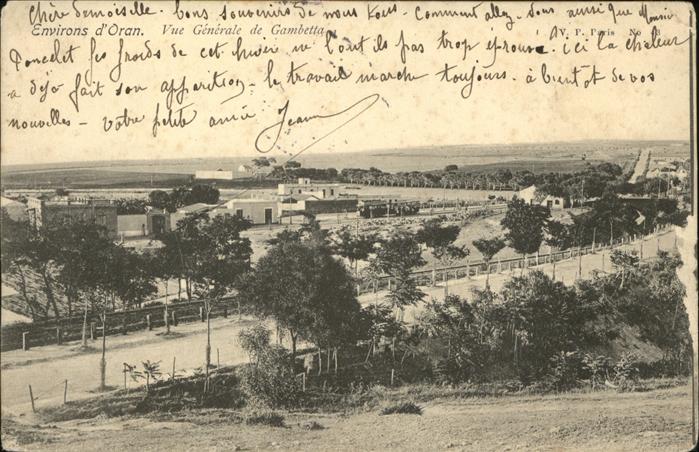 Chère demoiselle. bons souvenirs de nous tous - Comment allez-vous ainsi que Monsieur
Environs d'Oran. Vue Générale de Gambetta
V. P. Paris No 3
Poncelet les froids de cet hiver ne l'ont ils pas trop éprouvé. ici la chaleur
a déjà fait son apparition - le travail marche toujours. à bientôt de vos
nouvelles - votre petite amie Jeanne